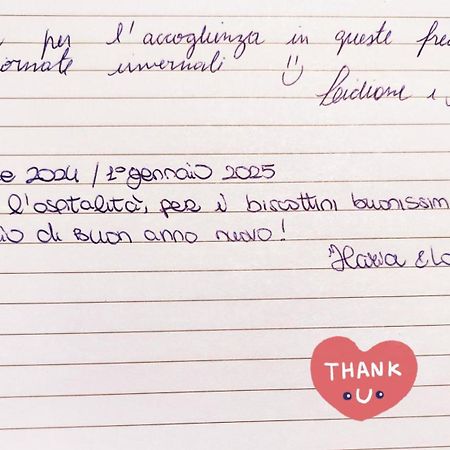 per l'accoglienza in queste fre
ornate invernali
e 2024 / 1º gennaio 2025
l'ospitalità, per i biscottini buonissim
io di buon anno nuovo!
Ilaria e Lo
THANK
U